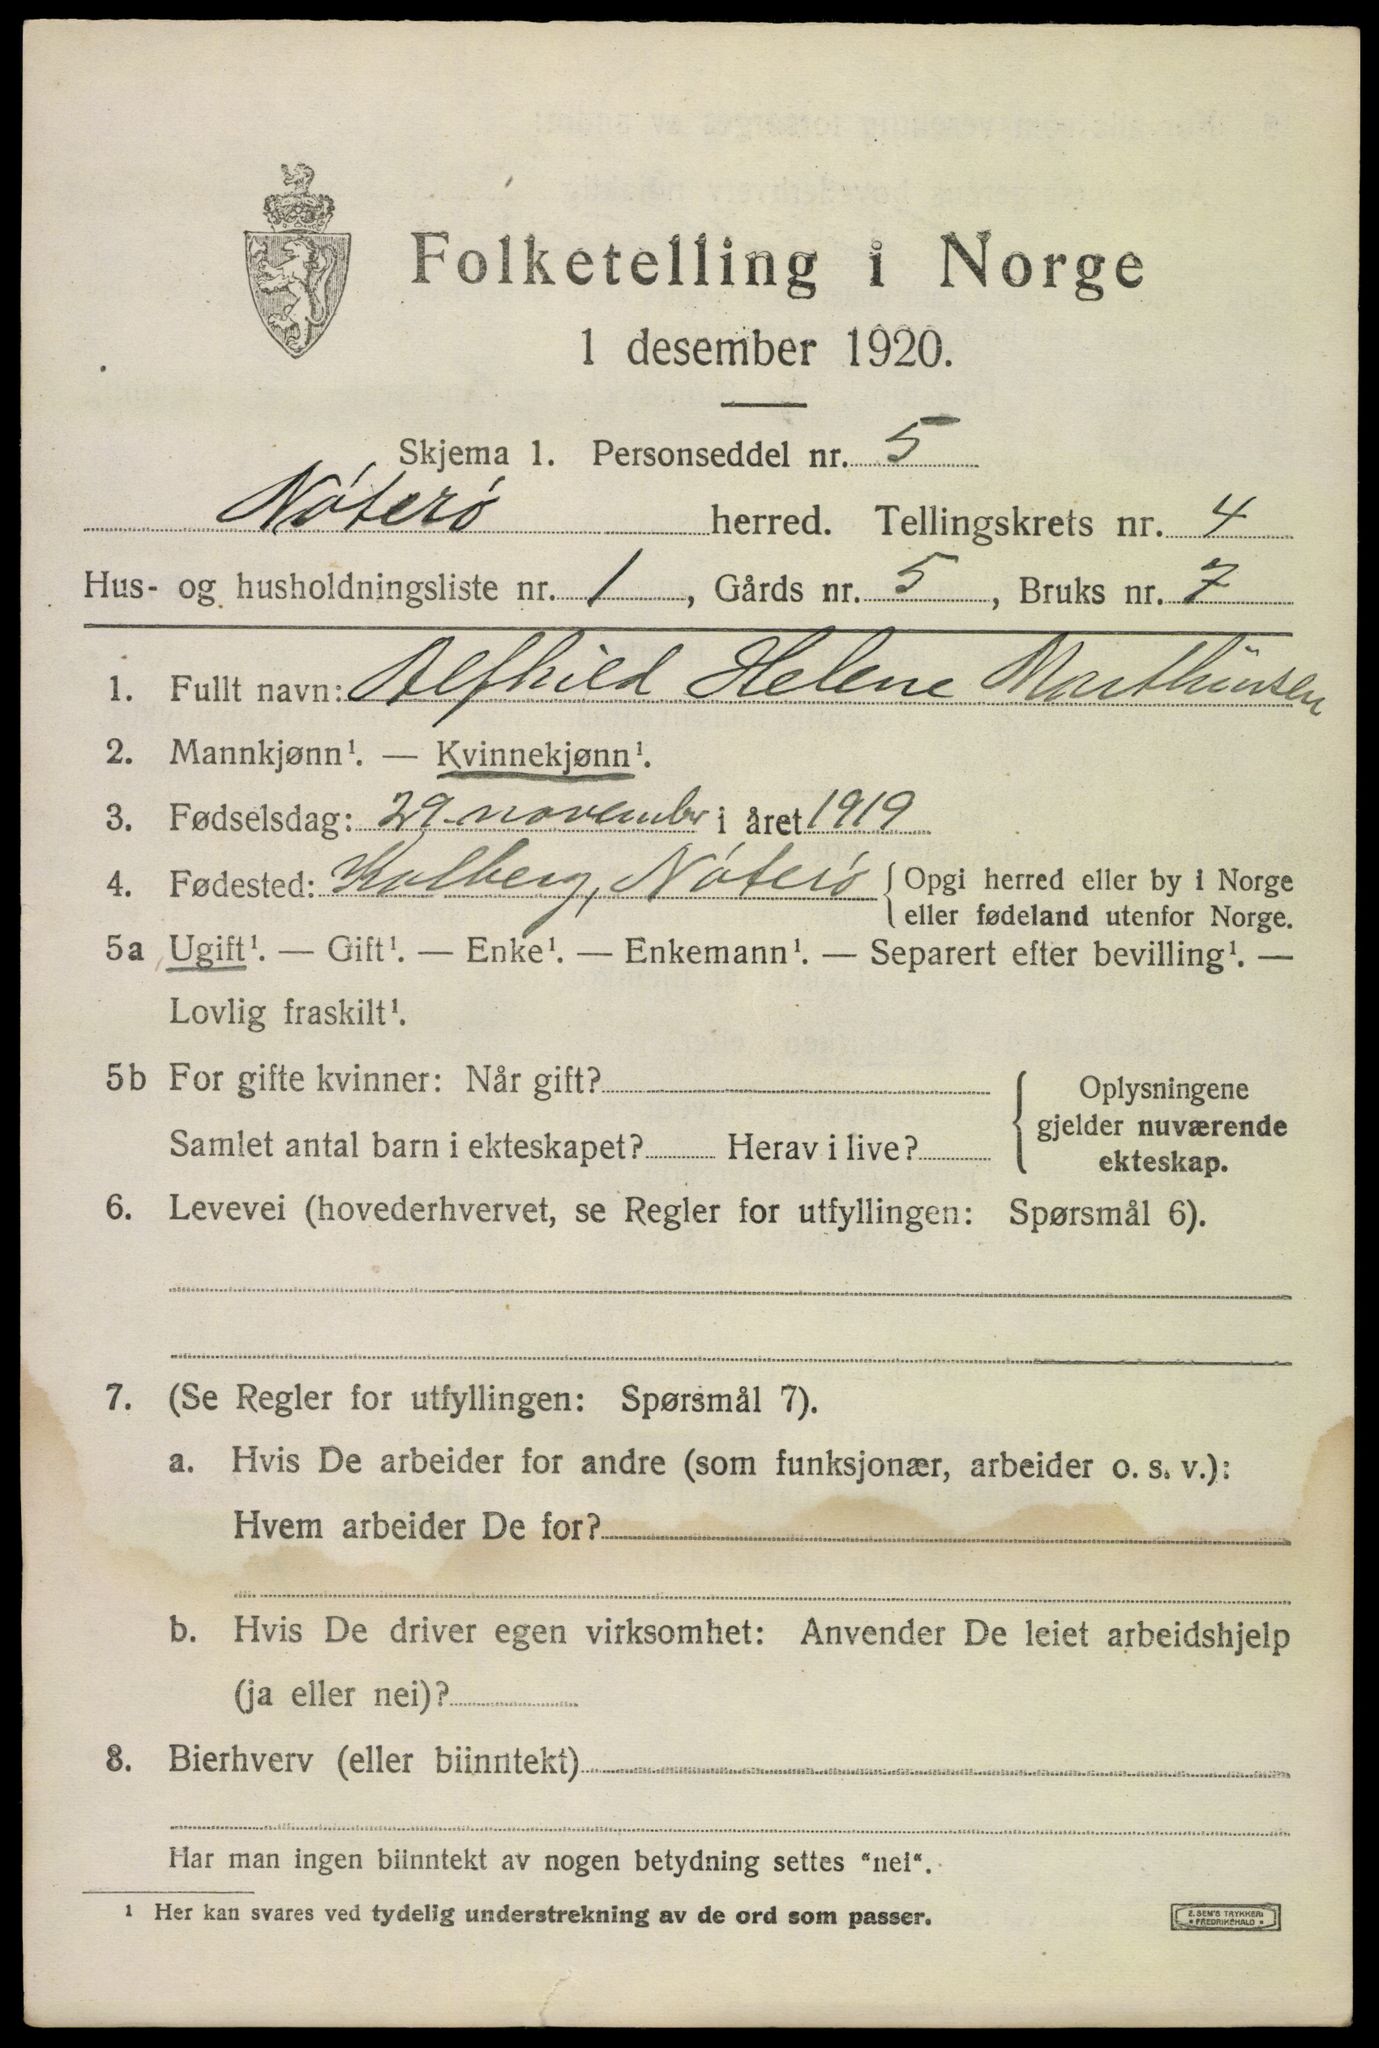 Folketelling i Norge
1 desember 1920.
Skjema 1. Personseddel nr. 5
Nøterø herred. Tellingskrets nr. 4
Hus- og husholdningsliste nr. 1, Gårds nr. 5, Bruks nr. 7
1. Fullt navn: Alfhild Helene Marthinsen
2. Mannkjønn¹. — Kvinnekjønn¹.
3. Fødselsdag: 29. november i året 1919
4. Fødested: Kolberg, Nøterø { Opgi herred eller by i Norge
eller fødeland utenfor Norge.
5a Ugift¹. — Gift¹. — Enke¹. — Enkemann¹. — Separert efter bevilling¹. —
Lovlig fraskilt¹.
5b For gifte kvinner: Når gift?
Samlet antal barn i ekteskapet? Herav i live?
Oplysningene
gjelder nuværende
ekteskap.
6. Levevei (hovederhvervet, se Regler for utfyllingen: Spørsmål 6).
7. (Se Regler for utfyllingen: Spørsmål 7).
a. Hvis De arbeider for andre (som funksjonær, arbeider o. s. v.):
Hvem arbeider De for?
b. Hvis De driver egen virksomhet: Anvender De leiet arbeidshjelp
(ja eller nei)?
8. Bierhverv (eller biinntekt)
Har man ingen biinntekt av nogen betydning settes "nei".
¹ Her kan svares ved tydelig understrekning av de ord som passer.
E. SEM'S TRYKKERI
• FREDRIKSHALD •